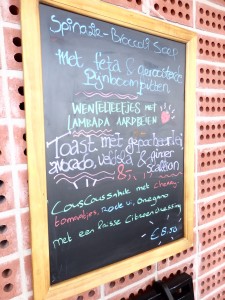 Spinazie-Broccoli Soep
met feta & geroosterde
Pijnboompitten
WENTELTEEFJES MET
LAMBADA AARDBEIEN
Toast met gepocheerd ei
avocado, veldsla &
CousCoussalade met Cherry
tomaatjes, Rode ui, Oregano
met een frisse Citroendressing
€8.50